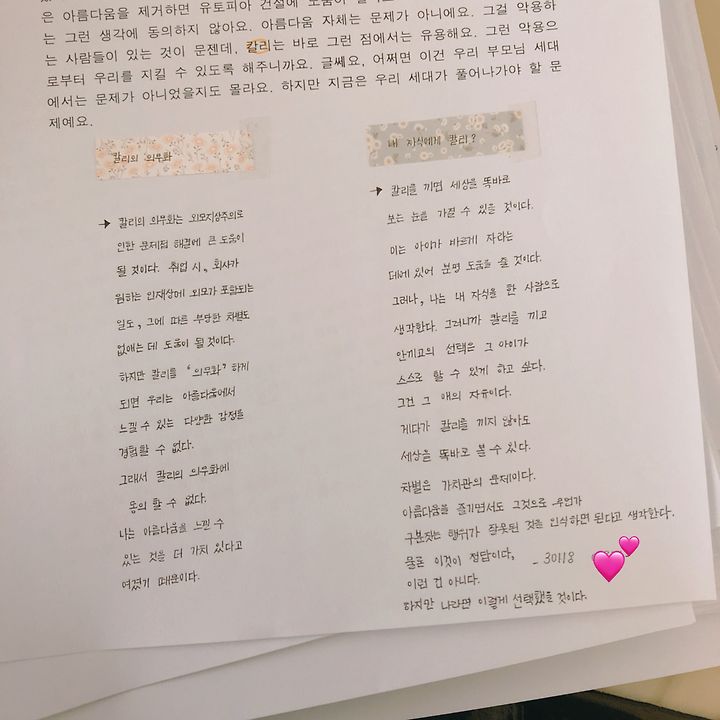 은 아름다움을 제거하면 유토피아 건설에 도움이
는 그런 생각에 동의하지 않아요. 아름다움 자체는 문제가 아니에요. 그걸 악용하
는 사람들이 있는 것이 문젠데, 칼리는 바로 그런 점에서는 유용해요. 그런 악용으
로부터 우리를 지킬 수 있도록 해주니까요. 글쎄요, 어쩌면 이건 우리 부모님 세대
에서는 문제가 아니었을지도 몰라요. 하지만 지금은 우리 세대가 풀어나가야 할 문
제예요.
칼리의 의무화
→ 칼리의 의무화는 외모지상주의로
인한 문제점 해결에 큰 도움이
될 것이다. 취업 시, 회사가
원하는 인재상에 외모가 포함되는
일도, 그에 따른 부당한 차별도
없애는 데 도움이 될 것이다.
하지만 칼리를 "의무화" 하게
되면 우리는 아름다움에서
느낄 수 있는 다양한 감정을
경험할 수 없다.
그래서 칼리의 의무화에
동의 할 수 없다.
나는 아름다움을 느낄 수
있는 것을 더 가치 있다고
여겼기 때문이다.
내 자식에게 칼리?
→ 칼리를 끼면 세상을 똑바로
보는 눈을 가질 수 있을 것이다.
이는 아이가 바르게 자라는
데에 있어 분명 도움을 줄 것이다.
그러나, 나는 내 자식을 한 사람으로
생각한다. 그러니까 칼리를 끼고
안끼고의 선택은 그 아이가
스스로 할 수 있게 하고 싶다.
그건 그 애의 자유이다.
게다가 칼리를 끼지 않아도
세상을 똑바로 볼 수 있다.
차별은 가치관의 문제이다.
아름다움을 즐기면서도 그것으로 우열가
구분짓는 행위가 잘못된 것을 인식하면 된다고 생각한다.
물론 이것이 정답이다,
이런 건 아니다.
하지만 나라면 이렇게 선택했을 것이다.
- 30118